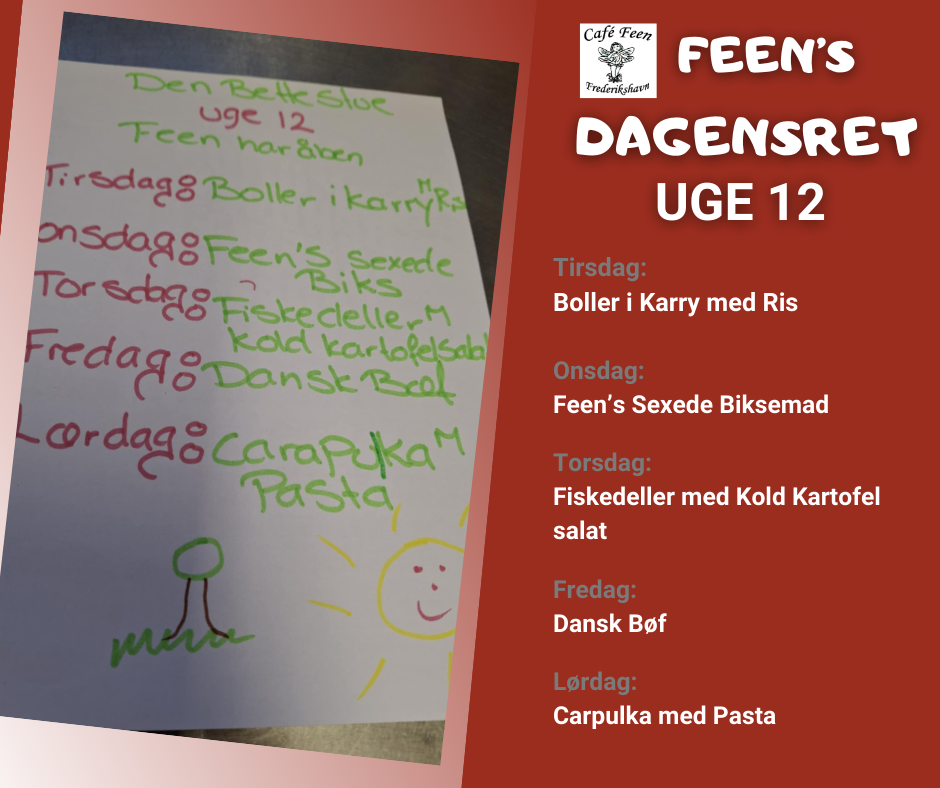 Den Bette Stue
uge 12
Feen har åben
Tirsdag: Boller i karry M Ris
Onsdag: Feen's sexede
Biks
Torsdag: Fiskedeller M
Kold kartofelsalat
Fredag: Dansk Bøf
Lørdag: Carapulka M
Pasta
Café Feen
Frederikshavn
FEEN'S
DAGENSRET
UGE 12
Tirsdag:
Boller i Karry med Ris
Onsdag:
Feen's Sexede Biksemad
Torsdag:
Fiskedeller med Kold Kartofel
salat
Fredag:
Dansk Bøf
Lørdag:
Carpulka med Pasta